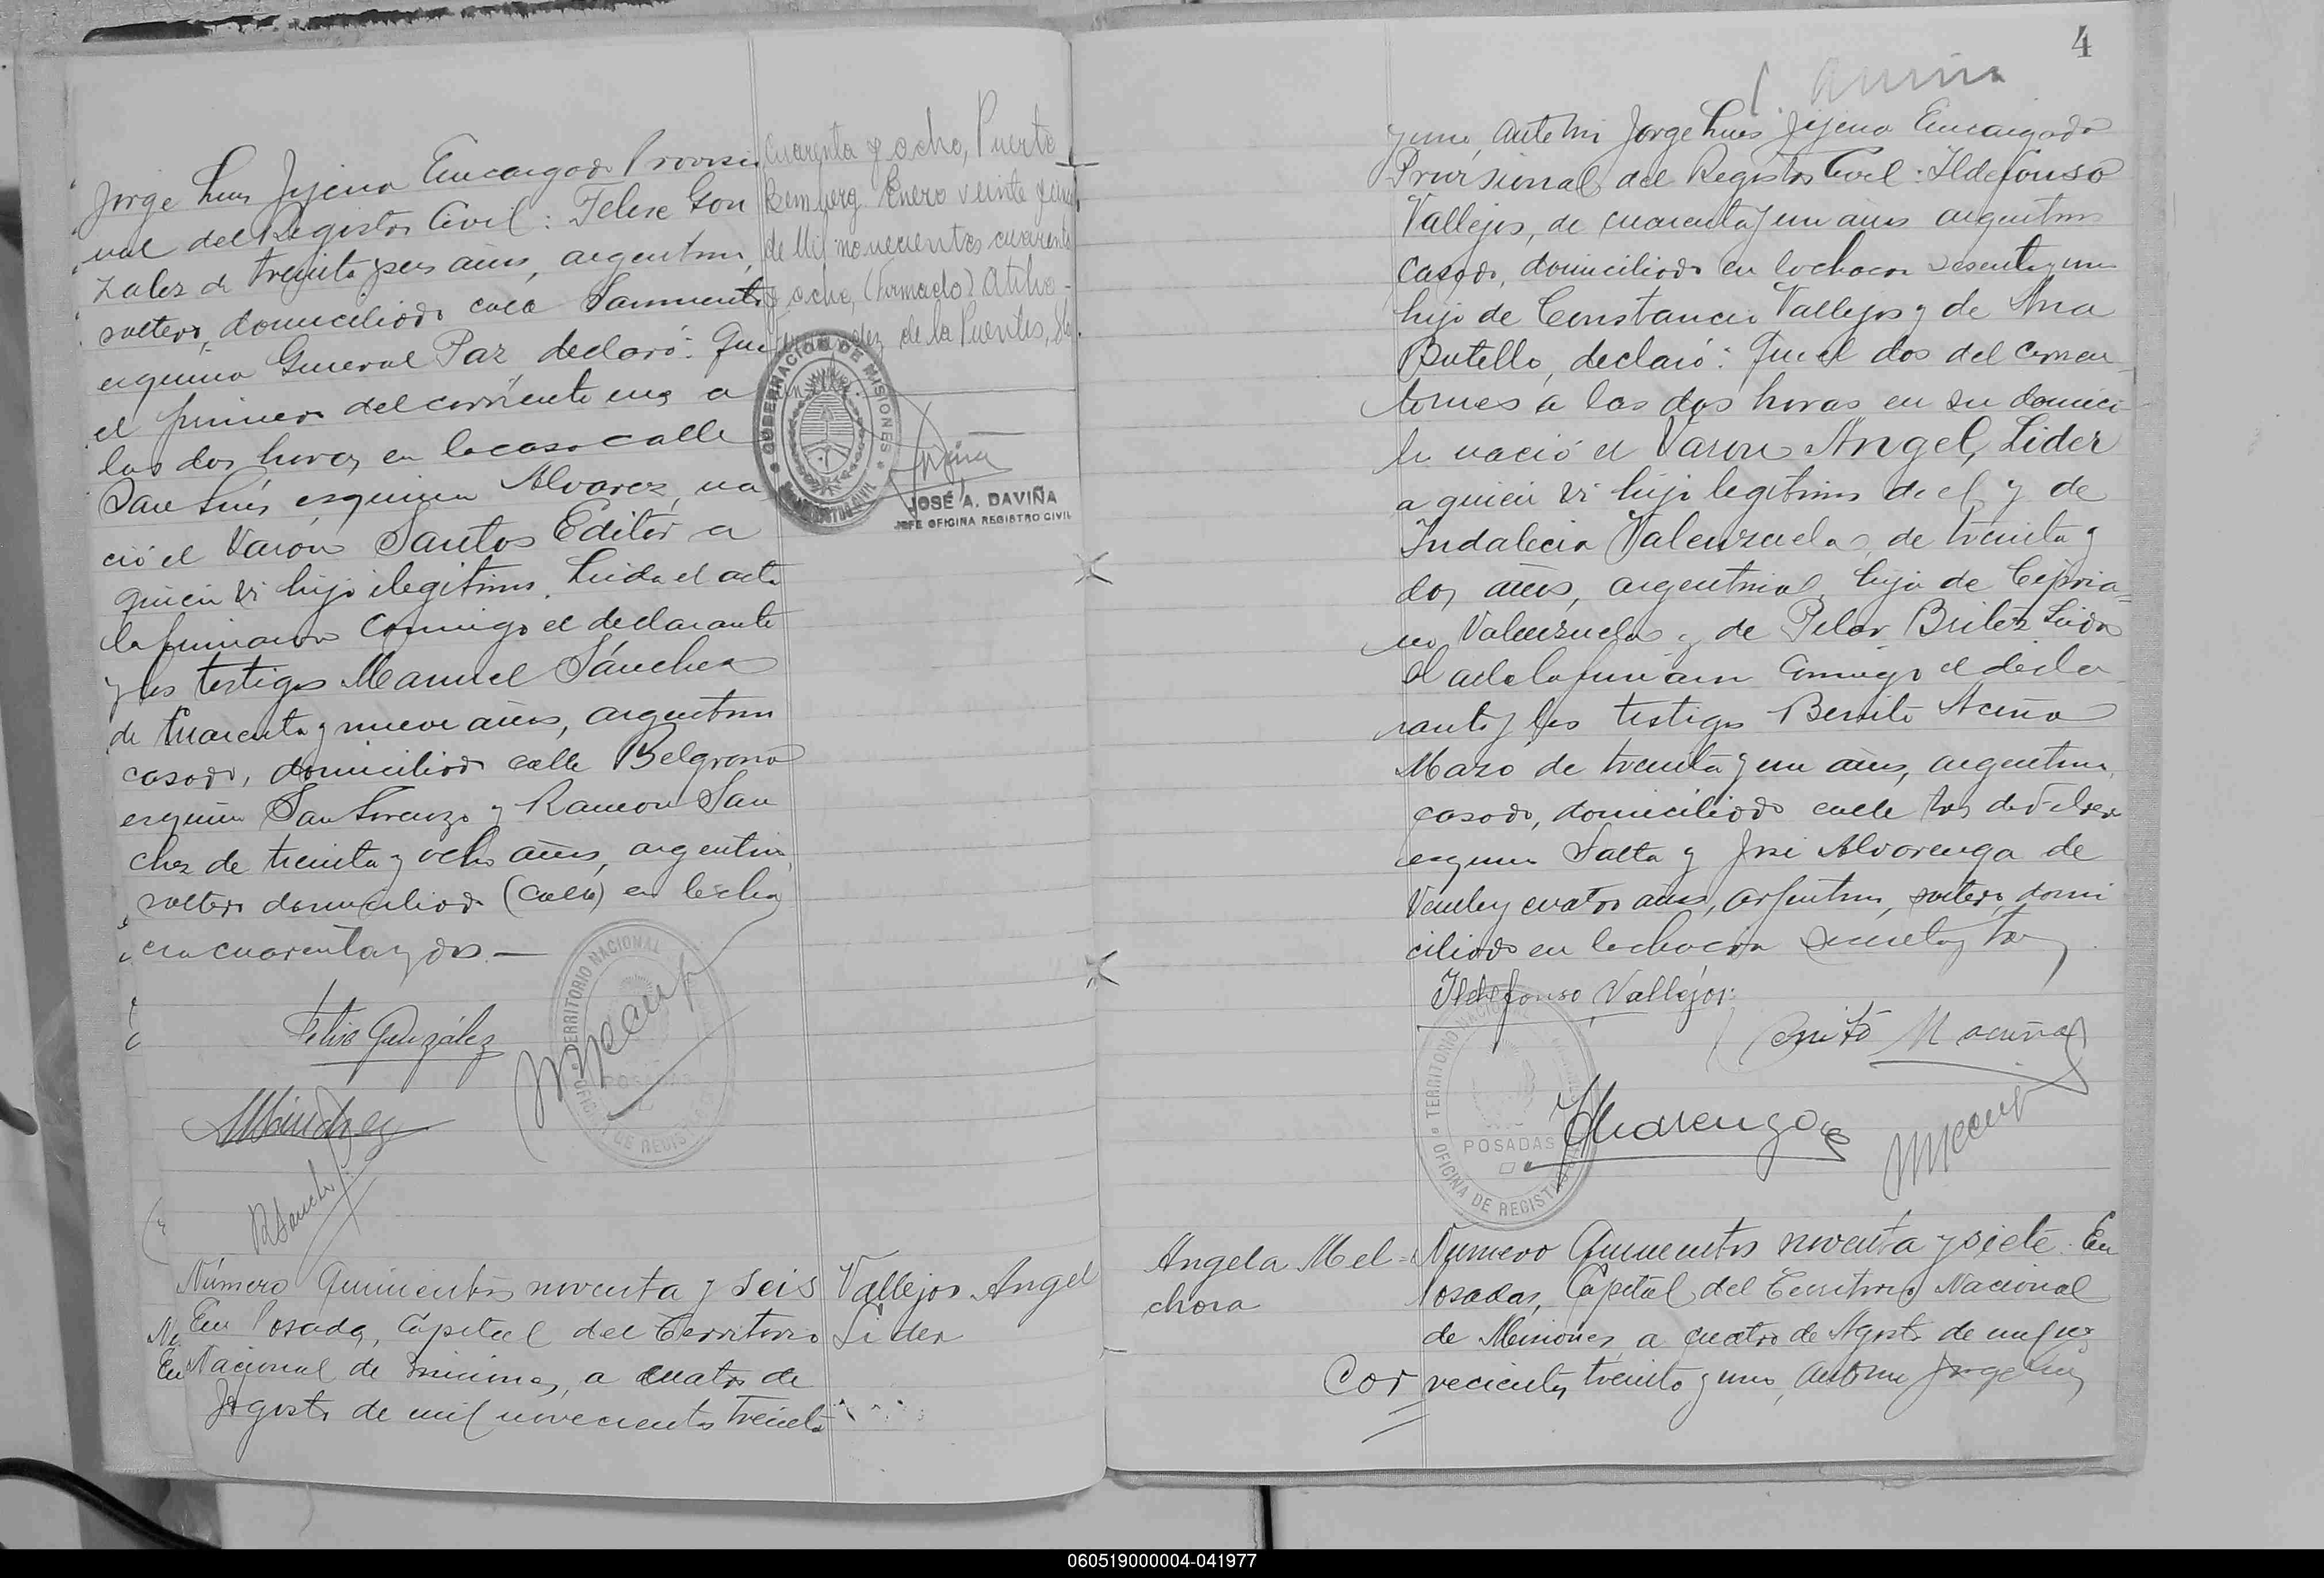 Jorge Luis Jijena Encargado Provisio
nal del Registro Civil: Felix Gon
zalez de treinta y seis años, argentino,
soltero, domiciliado calle Sarmiento
esquina General Paz, declaró: Que
el primero del corriente mes a
las dos horas en la casa calle
San Luis esquina Alvarez, na
ció el Varón Santos Editor a
quien vi hijo ilegitimo. Leida el acta
la firmaron conmigo el declarante
y los testigos Manuel Sánchez
de cuarenta y nueve años, argentino
casado, domiciliado calle Belgrano
esquina San Lorenzo y Ramon San
chez de treinta y ocho años, argentino,
soltero domiciliado (calle) en la cha
cra cuarenta y dos.—
Felix González
MSánchez
RSanchez
TERRITORIO NACIONAL
POSADAS
OFICINA DE REGISTRO
cuarenta y ocho, Puerto
Bemberg Enero veinte y
de Mil novecientos cuarenta
y ocho, (Firmado) Atilio
de la Puente,
GOBERNACION DE MISIONES
REGISTRO CIVIL
JOSÉ A. DAVIÑA
JEFE OFICINA REGISTRO CIVIL
Número Quinientos noventa y seis
En Posadas, Capital del Territorio
Nacional de Misiones, a cuatro de
Agosto de mil novecientos treinta
Vallejos Angel
Lider
4
y uno, ante mi Jorge Luis Jijena Encargado
Provisional del Registro Civil: Ildefonso
Vallejos, de cuarenta y un años argentino
casado, domiciliado en la chacra sesenta y uno
hijo de Constancio Vallejos y de Ana
Botello, declaró: Que el dos del corrien
te mes a las dos horas en su domici
lio nació el Varon Angel, Lider
a quien vi hijo legitimo de el y de
Indalecia Valenzuela, de treinta y
dos años, argentina, hija de Cipria=
no Valenzuela y de Pilar Britez Leida
el acta la firmaron conmigo el decla
rante y los testigos Benito Acuña
Mazó de treinta y un años, argentino,
casado, domiciliado calle tres de Febrero
esquina Salta y José Alvarenga de
Veinte y cuatro años, argentino, soltero, domi
ciliado en la chacra sesenta y tres
Ildefonso Vallejos
Benito M Acuña
JAlvarenga
TERRITORIO NACIONAL
POSADAS
OFICINA DE REGISTRO
Angela Mel=
chora
Número Quinientos noventa y siete. En
Posadas, Capital del Territorio Nacional
de Misiones, a cuatro de Agosto de mil no
Cor vecientos treinta y uno, ante mi Jorge Luis
060519000004-041977